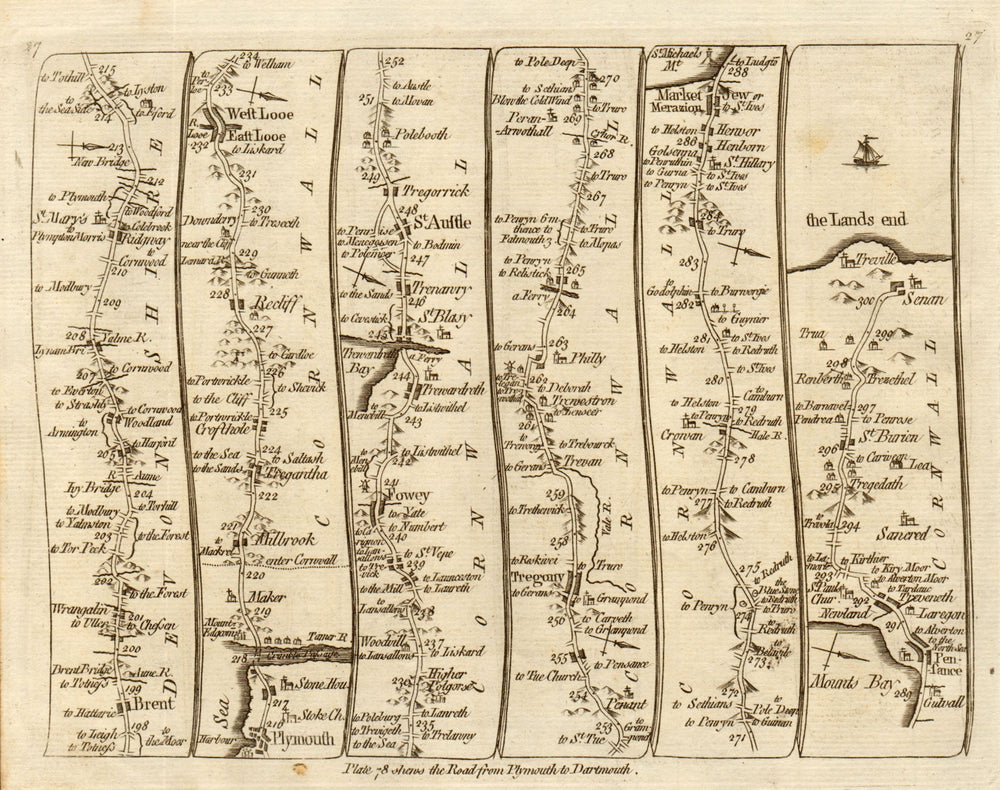 27
27
to Tothill
215
to Lyston
the Sea Side
214
to Efford
213
New Bridge
212
to Plymouth
to Woodford
St. Marys
to Colebrook
to Plympton Morris
Ridgway
to Cornwood
210
to Modbury
209
208
Yalme R.
Lynam Bri.
to Cornwood
207
to Everton
to Strashly
to Cornwood
Woodland
to Armington
to Harford
205
R. Aume
Ivy Bridge
204
to Modbury
to Torhill
to Yalmston
203
to the Forest
to Tor Peek
202
to the Forest
Wrangalin
201
to Uller
to Chessen
200
Brent Bridge
Aune R.
to Totness
199
Brent
to Hattaric
198
to Leigh
to the Moor
to Totness
DEVONSHIRE
234
to Welham
233
West Looe
R. Looe
East Looe
232
to Liskard
231
230
Downderry
to Treseeth
near the Cliff
229
to Gunneth
228
Recliff
227
to Cardloe
226
to Portwrickle
to Shevick
to the Cliff
225
to Portwrickle
Crofthole
224
to the Sea
to Saltash
to the Sands
Tregantha
222
221
Milbrook
to Mackrel
enter Cornwall
220
Maker
219
Mount Edgcum
Tamer R.
218
Crimble Passage
Stone Hou.
217
Stoke Ch.
216
Plymouth
Sea
Harbour
CORNWALL
252
to Austle
251
to Movan
Polebooth
249
Tregorrick
248
St. Austle
to Penrise
to Menegessen
to Bodmin
to Polenver
247
Trenanry
to the Sands
246
St. Blasy
to Cevestick
245
Trewardreth Bay
a Ferry
244
Trewardreth
to Menebill
to Listwithel
243
to Listwithel
242
241
Fowey
to Yate
to Numbert
240
to St. Vepe
239
to the Mill
to Launceston
to Lanreth
to Lansallos
238
237
Woodwill
to Lansallons
to Liskard
236
Higher Polgorse
to Poleburg
to Lanreth
to Trevigeth
235
to Trelanny
to the Sea
CORNWALL
to Pole Deep
270
to Sethians
Blow the Cold Wind
to Truro
Peran-Arwothall
269
268
to Truro
267
to Penryn 6 m
thence to Falmouth 3
to Truro
to Mopas
to Penryn
to Rehstick
265
a Ferry
264
to Gerans
263
Philly
262
to Deborah
Trewestron
to Benseer
261
to Trenowy
to Trebourck
to Gerans
Trevan
259
to Trethewick
258
Vale R.
to Roskivei
to Truro
Tregony
to Gerans
to Granpond
256
to Carveth
to Granpond
255
to Pensance
to The Church
254
Penant
253
to Grampond
to St. Tue
CORNWALL
St. Michaels Mt.
to Ludgts
288
Market Jew or Merazion
to St. Ives
to Helston
Henvor
286
Henborn
Golsenna
to Penruthin
St. Hillary
to Gurna
to St. Ives
to Penryn
to St. Ives
284
to Truro
283
to Godolphin
to Burwergie
282
to Guynier
281
to St. Ives
to Helston
to Redruth
to St. Ives
280
to Camburn
to Helston
279
to Penryn
to Redruth
Crowan
Hale R.
278
to Penryn
to Camburn
277
to Redruth
to Helston
276
275
to Redruth
the Blue Stone
to Penryn
to Redruth
to Truro
274
to Redruth
273
272
to Sethians
to Pole Deep
to Penryn
to Guinan
271
CORNWALL
the Lands end
Treville
300
Senan
Trua
299
298
Renberth
Trevethel
to Barnavel
297
Pentrea
to Penrose
St. Burien
296
to Carween
Lea
295
Tregedath
to Trevola
294
Sancred
to Kirthier
to Kiry Moor
293
to Alverton Moor
St. Paul Chur.
292
Treveneth
Newland
Laregan
291
to Alverton
to the North Sea
Pensance
Mounts Bay
289
Gulvall
CORNWALL
Plate 78 shews the Road from Plymouth to Dartmouth.